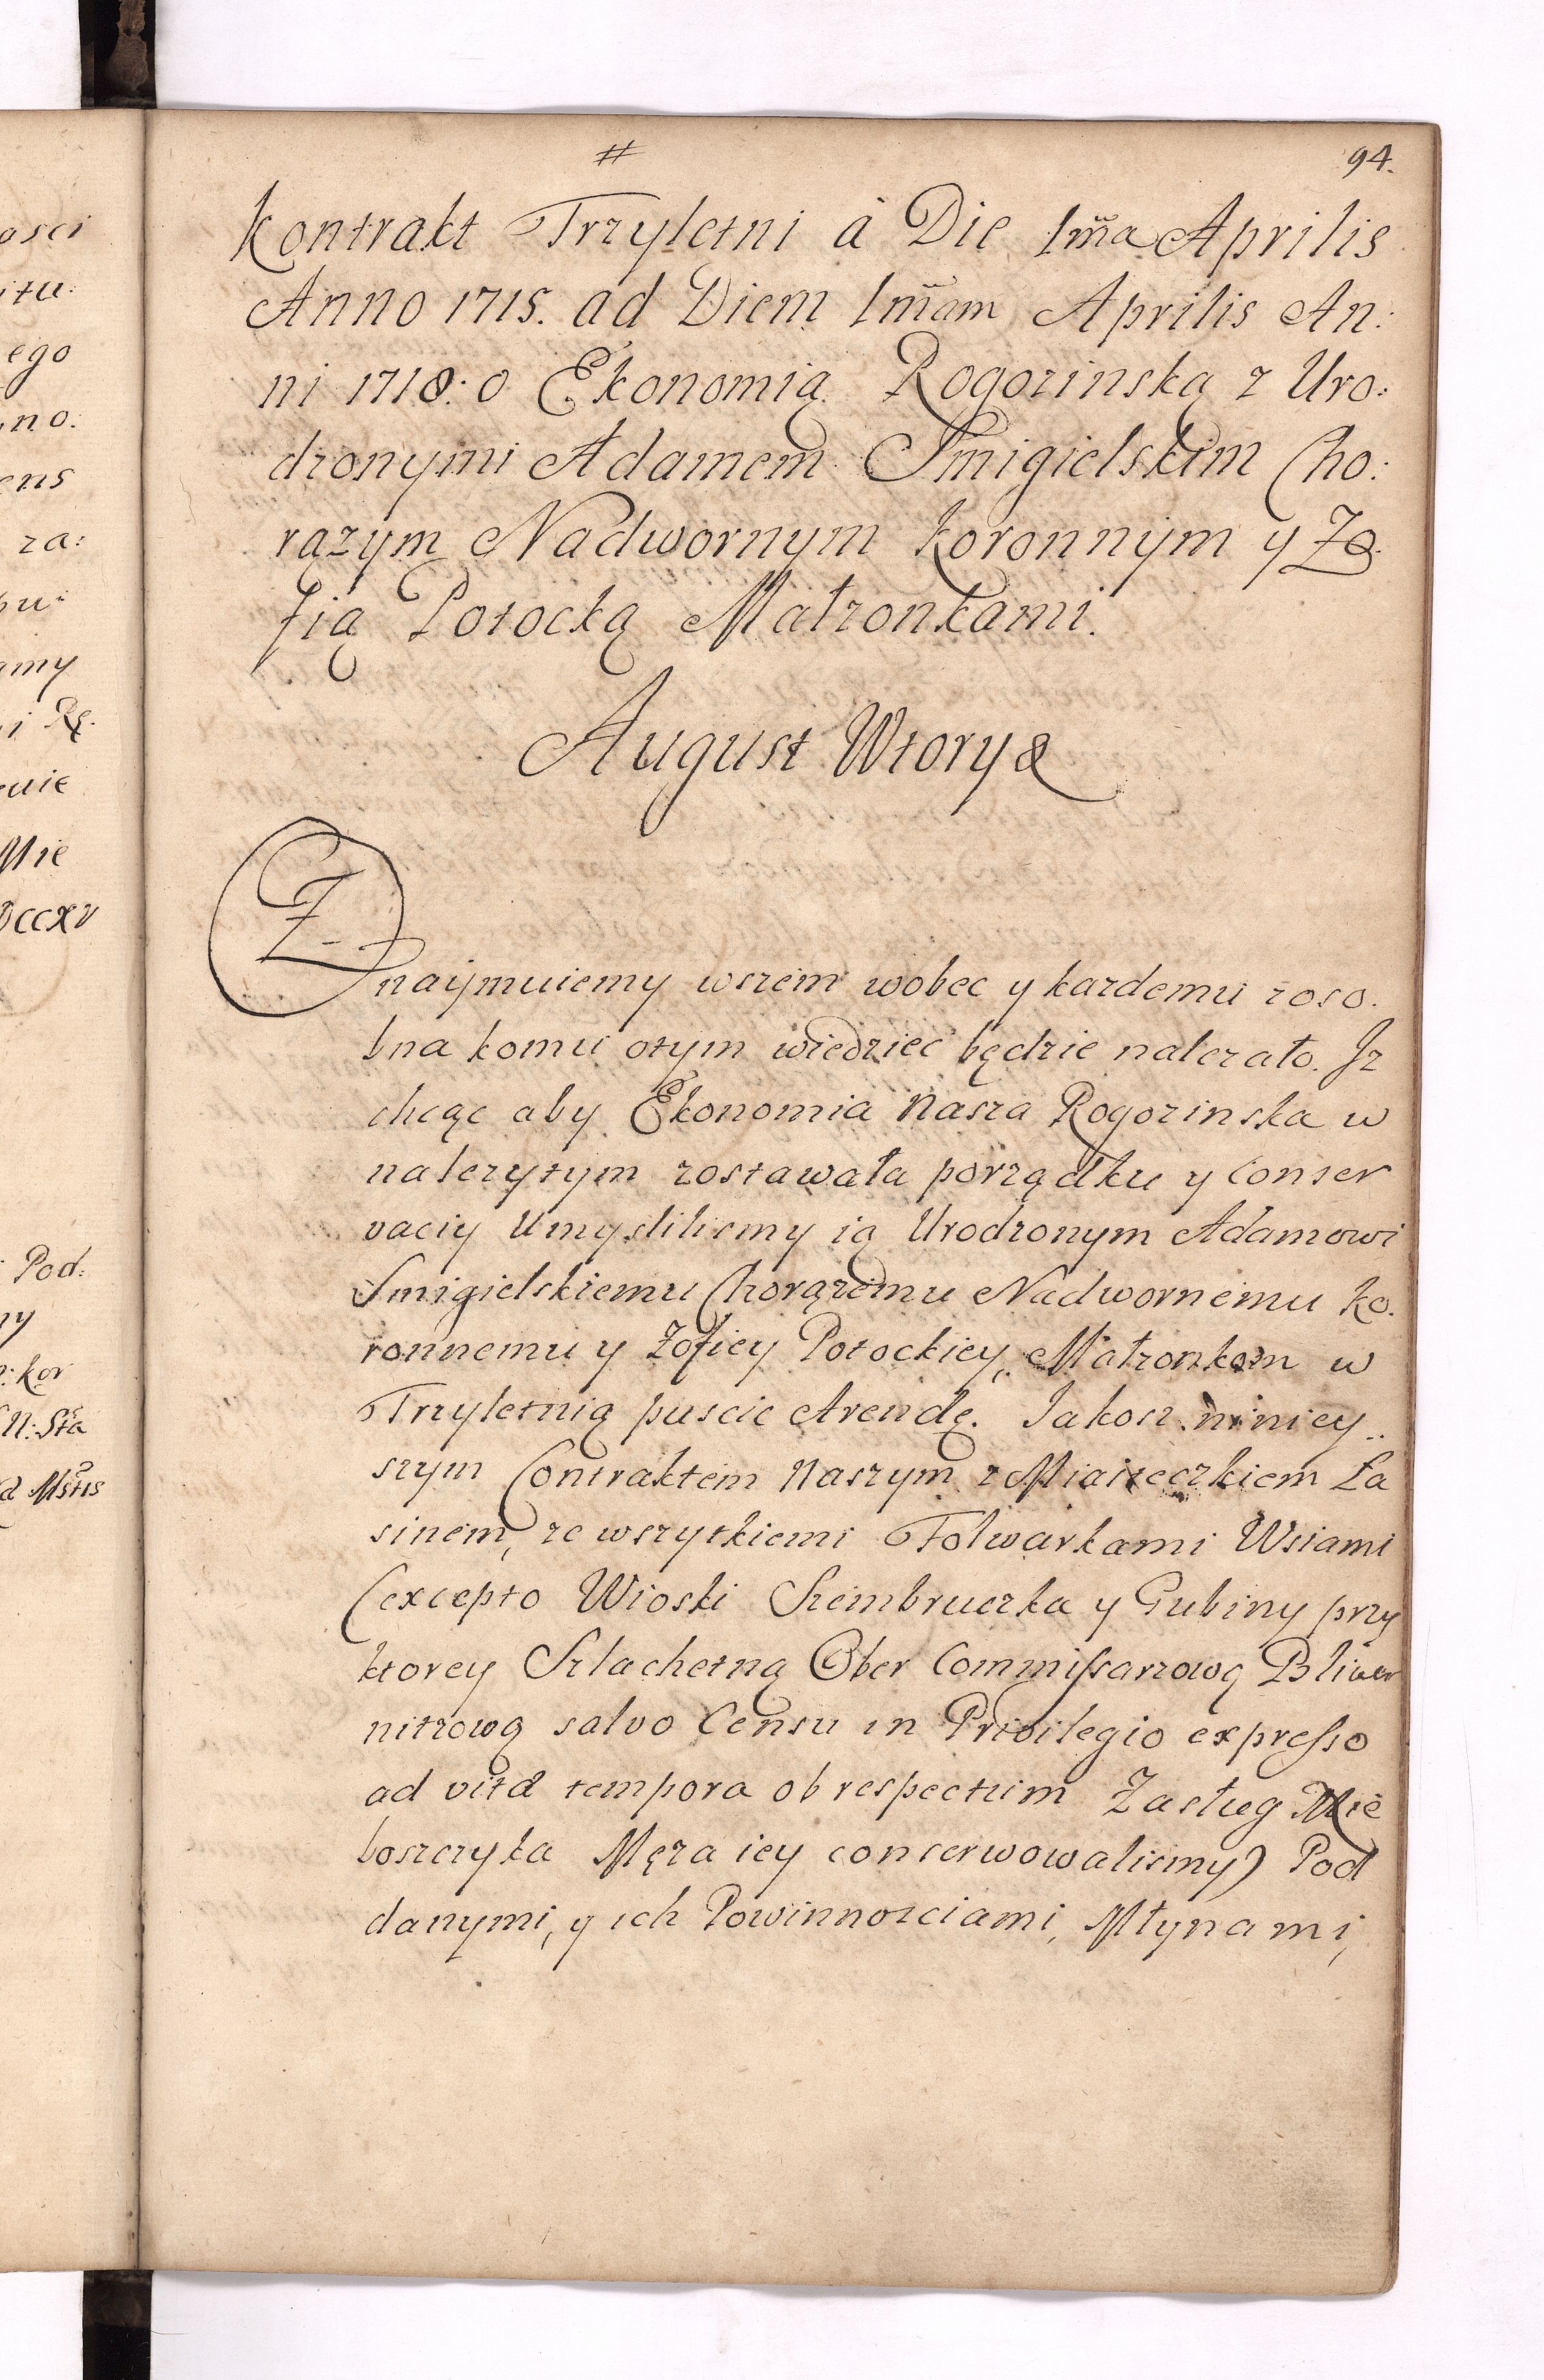 #
94.
Kontrakt Trzyletni à Die 1m̃a Aprilis
Anno 1715. ad Diem 1m̃am Aprilis An:
ni 1718: o Ekonomią Rogozinską z Uro:
dzonymi Adamem Smigielskim Cho:
rązym Nadwornym Koronnym y Zo:
fią Potocką Małzonkami.
August Wtory &
Znaijmuiemy wszem wobec y kazdemu zoso.
bna komu otym wiedziec będzie nalezało. Jz
chcąc aby Ekonomia Nasza Rogozinska w
nalezytym zostawała porządku y Conser
vaciy Umyslilismy ią Urodzonym Adamowi
Smigielskiemu Chorązemu Nadwornemu Ko.
ronnemu y Zofiey Potockiey, Małzonkom w
Trzyletnią puscic Arendę. Jakosz niniey..
szym Contraktem Naszym z Miasteczkiem Ła
sinem, ze wszytkiemi Folwarkami Wsiami
(excepto Wioski Szembruczka y Gubiny przy
ktorey Szlachetną Ober Commissarzową
nitzową salvo Censu in Privilegio expresso
ad vitæ tempora ob respectum Zasług Nie
boszczyka Męza iey conserwowalismy) Pod
danymi, y ich Powinnosciami, Młynami,
osci
itu:
ego
no:
ens
za:
pu:
amy
i Rę.
enie
Mie
DCCXV
Pod:
ny
: kor
N: Sta
d Mstis